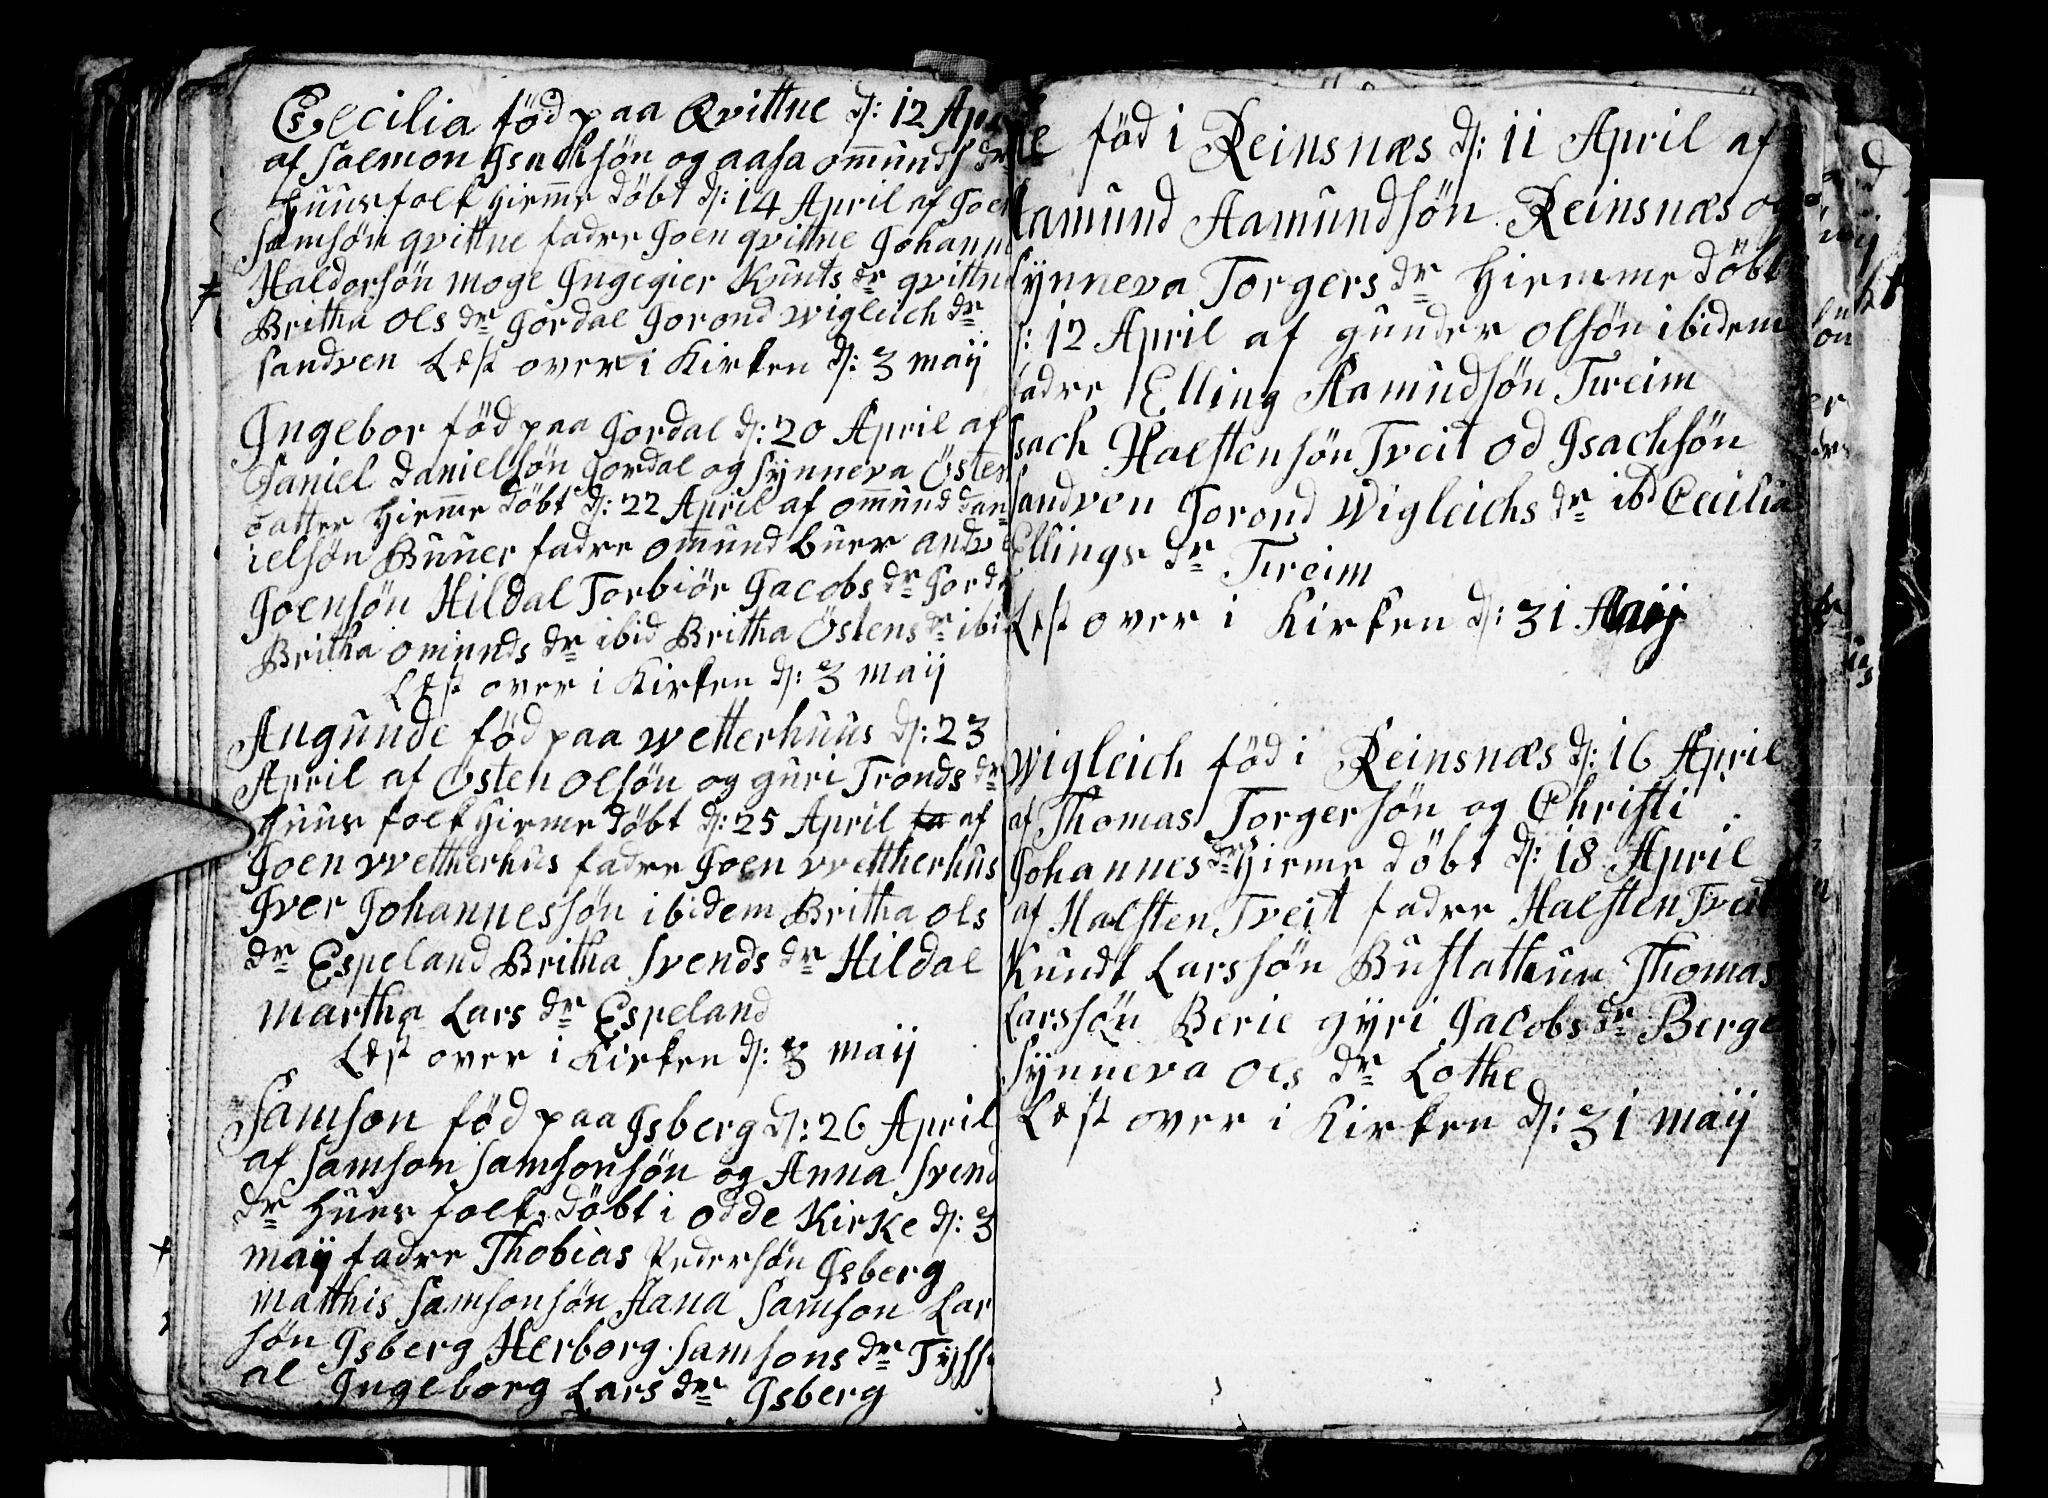 Cecilia föd paa Qvittne d: 12 Apr
af Salmon Isachsön og aasa omunds dr
huusfolk hiem̄e döbt d: 14 April af Joen
Samsön qvittne fadre Joen qvittne Johann
Haldorsön moge Ingegier Knuts dr qvittne
Britha ols dr Jordal Jorond wigleich dr
sandven Læst over i Kirken d: 3 maij
Ingebor föd paa Jordal d: 20 April af
Daniel Danielsön Jordal og Synneva Östen
datter hiem̄e döbt d: 22 April af omund dan
ielsön Buuer fadre omund buer andve
Joensön Hildal Torbiör Jacobs dr Jorda
Britha omunds dr ibid Britha Östens dr ibid
Læst over i Kirken d: 3 maij
Angunde föd paa wetterhuus d: 23
April af Östen olsön og guri Tronds dr
huus folk hieme döbt d: 25 April af
Joen wettherhus fadre Joen wettherhus
Iver Johannessön ibidem Britha ols
dr Espeland Britha Svends dr Hildal
martha Lars dr Espeland
Læst over i Kirken d: 3 maij
Samson föd paa Isberg d: 26 April
af Samson Samsonsön og Anna Svend
dr huus folk döbt i odde Kirke d: 3
maij fadre Thobias Pedersön Isberg
matthis Samsonsön Aana Samson Lar
sön Isberg Herborg Samsons dr Tysse
al Ingeborg Lars dr Isberg
föd i Reinsnæs d: 11 April af
Aamund Aamundsön Reinsnæs og
Synneva Torgers dr hiemme döbt
d: 12 April af gunder olsön ibidem
fadre Elling Aamudsön Tveim
Isach Halstensön Tveit od Isachsön
Sandven Jorond Wigleichs dr ibd Cecilia
Ellings dr Tveim
Læst over i Kirken d: 31 Maij
Wigleich föd i Reinsnæs d: 16 April
af Thomas Torgersön og Christi
Johannes dr hieme döbt d: 18 April
af Halsten Tveit fadre Halsten Tveit
Kundt Larssön Bustathun Thomas
Larssön Berie gyri Jacobs dr Berge
Synneva ols dr Lothe
Læst over i Kirken d: 31 maij